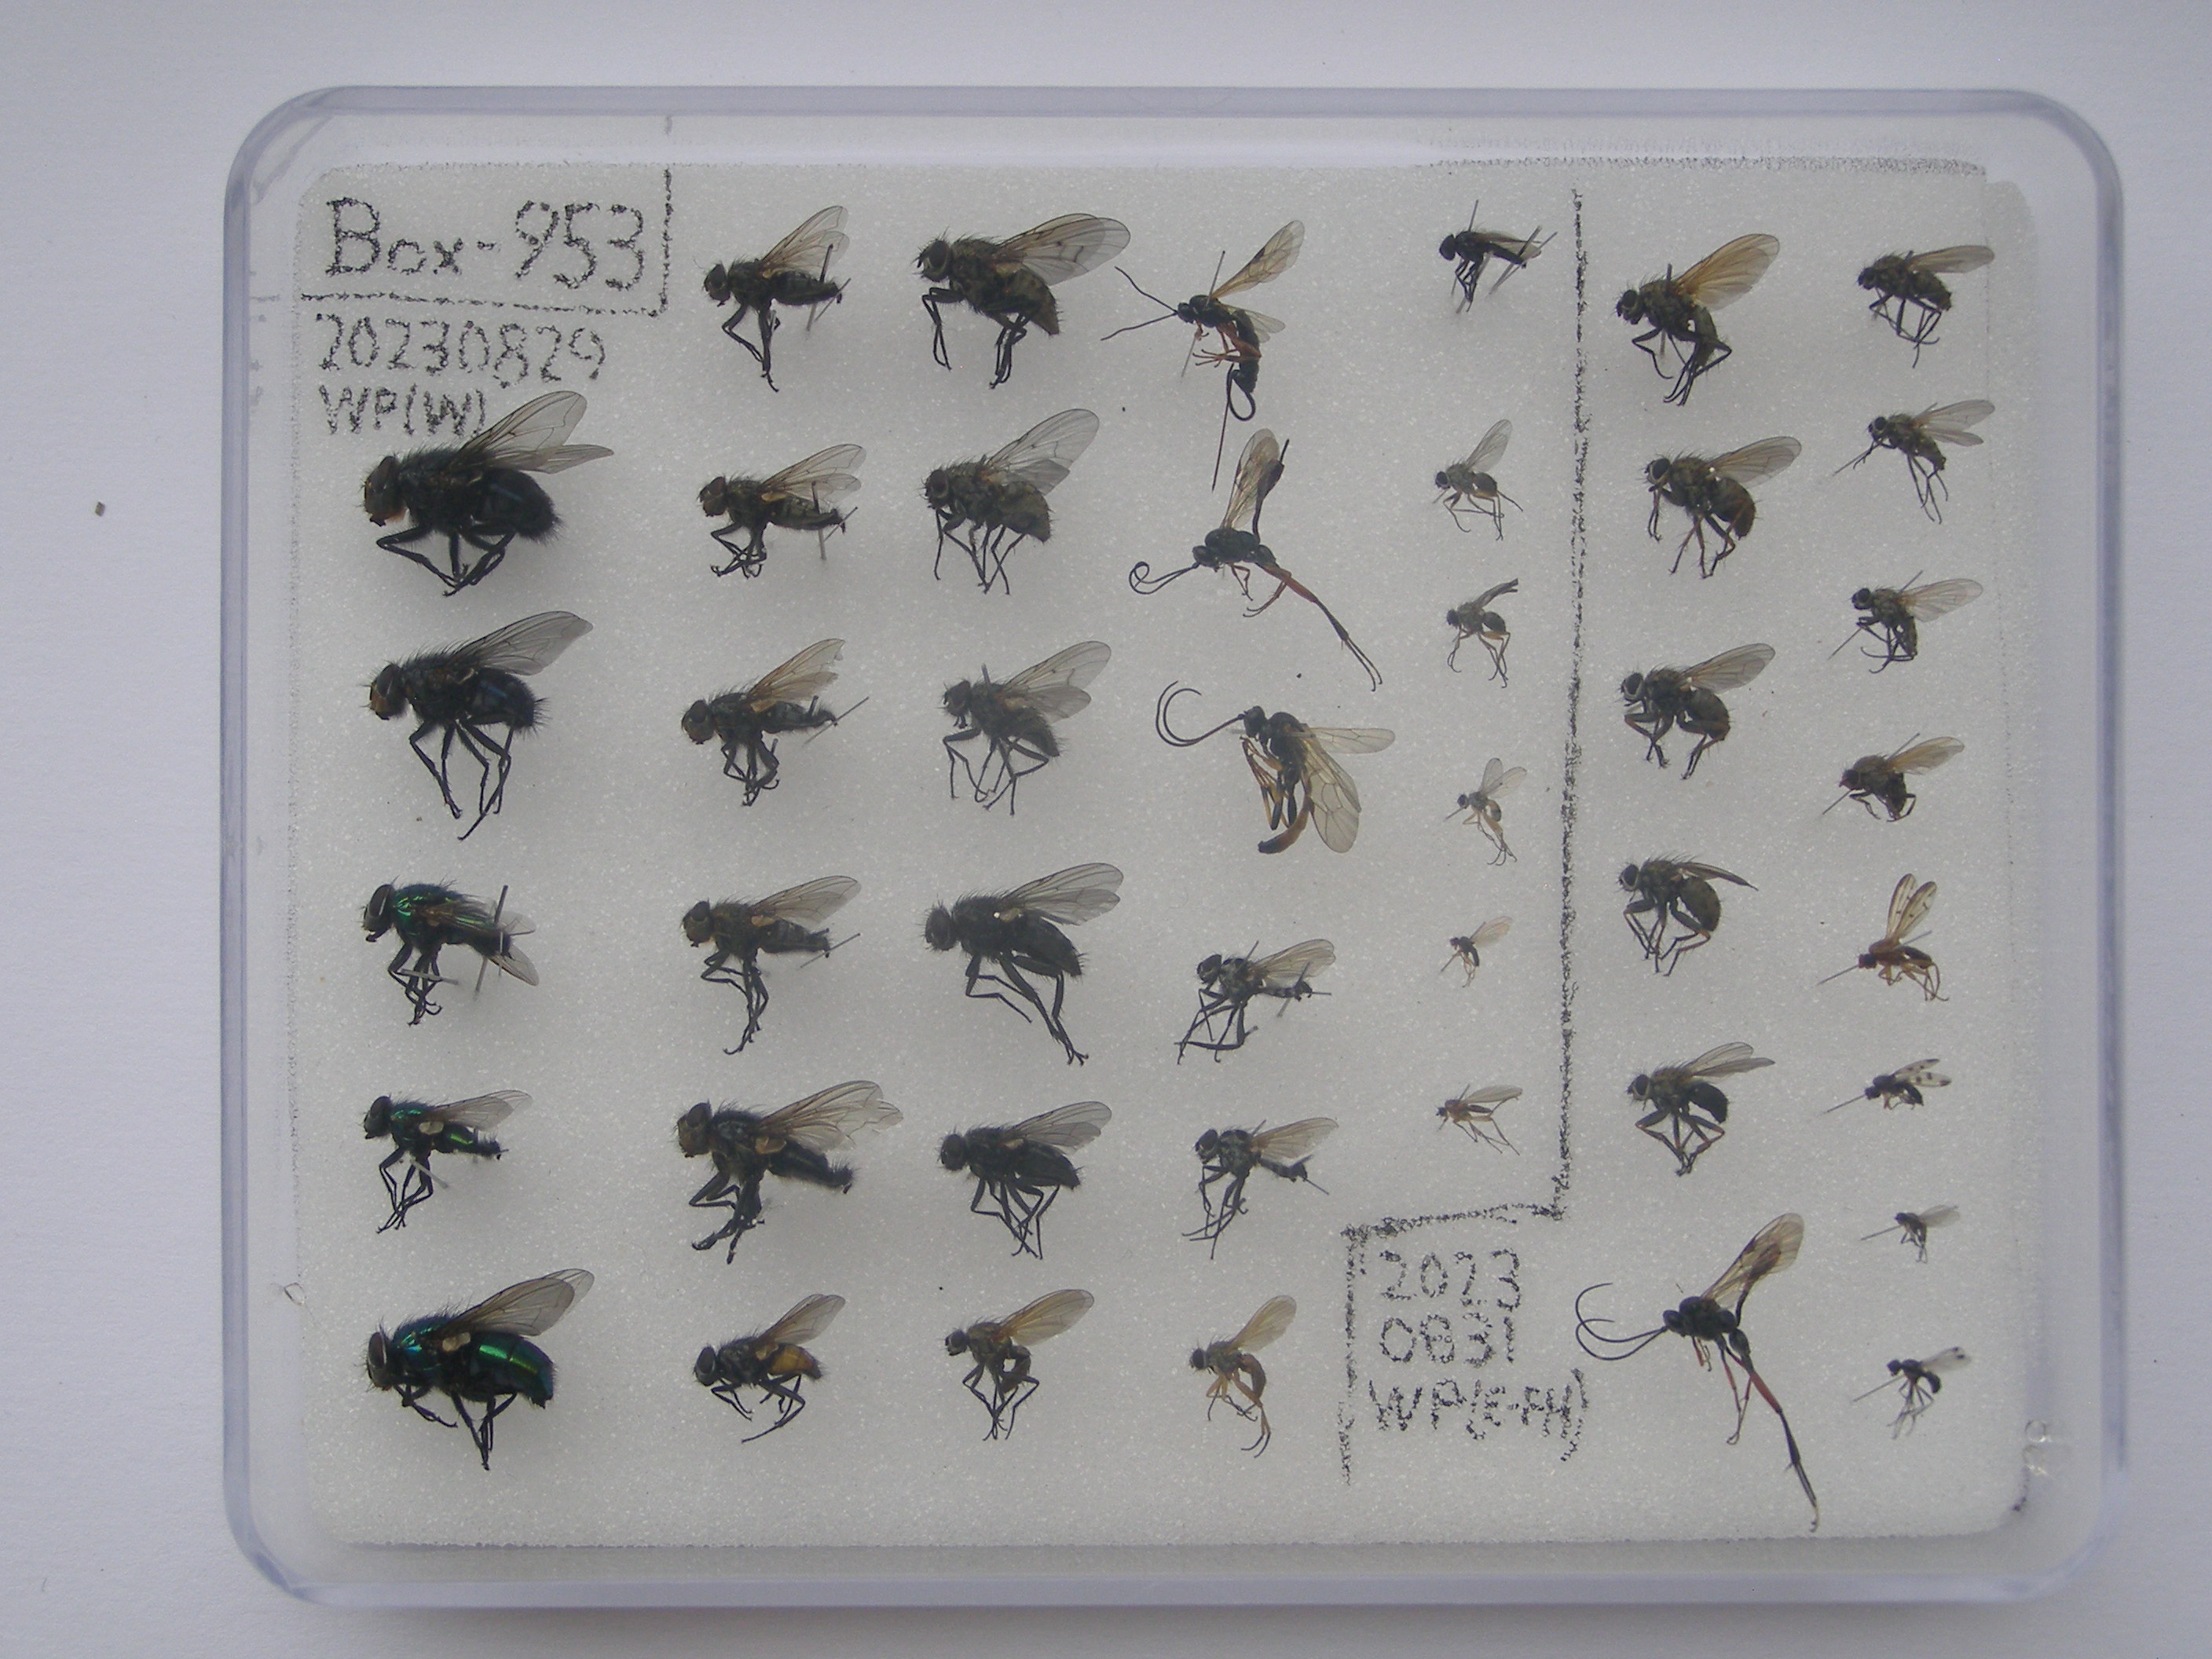 Box-953
20230829
WP(W)
2023
0831
WP(E-FH)